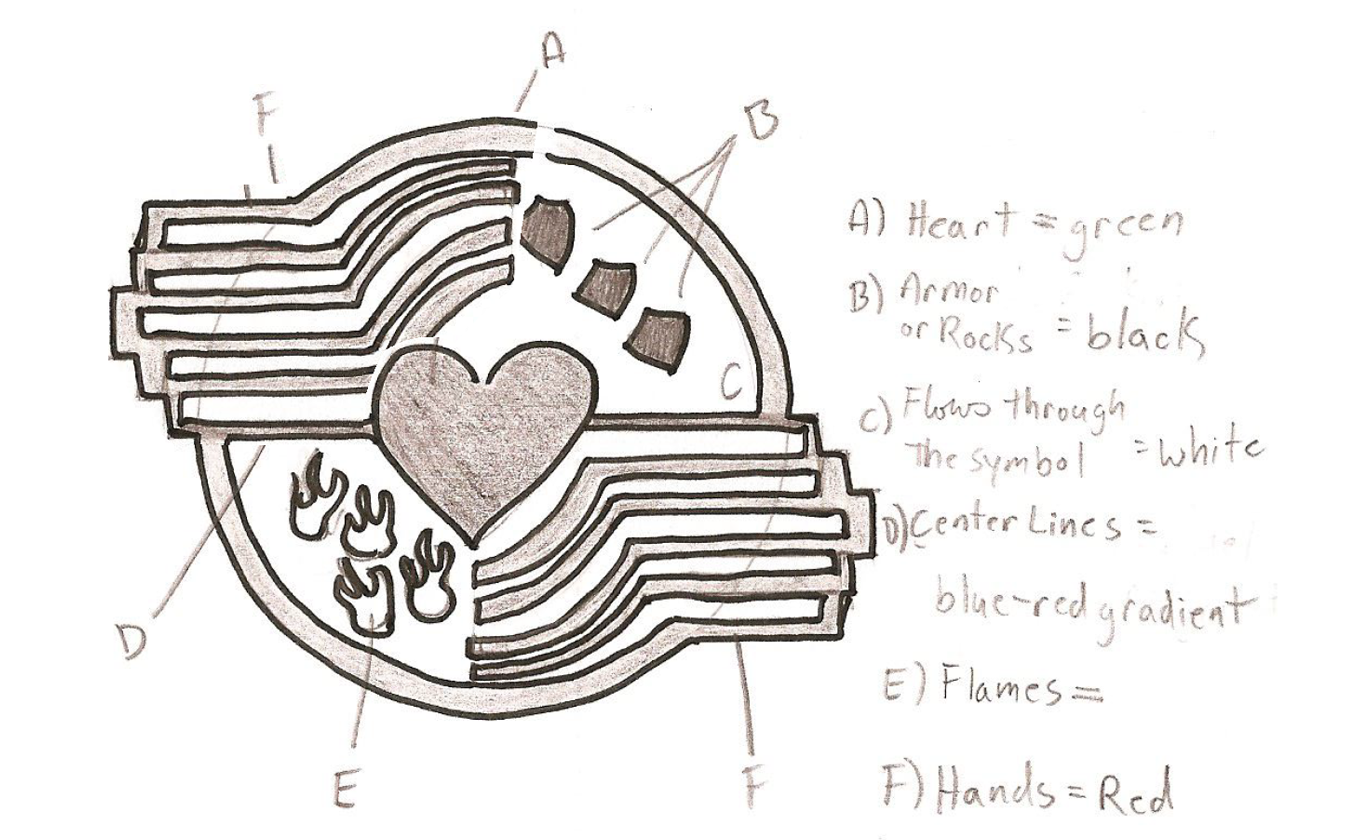 A
F
B
A) Heart = green
B) Armor
or Rocks = black
C
C) Flows through
The symbol = white
D) Center Lines =
blue-red gradient
D
E) Flames =
E
F
F) Hands = Red